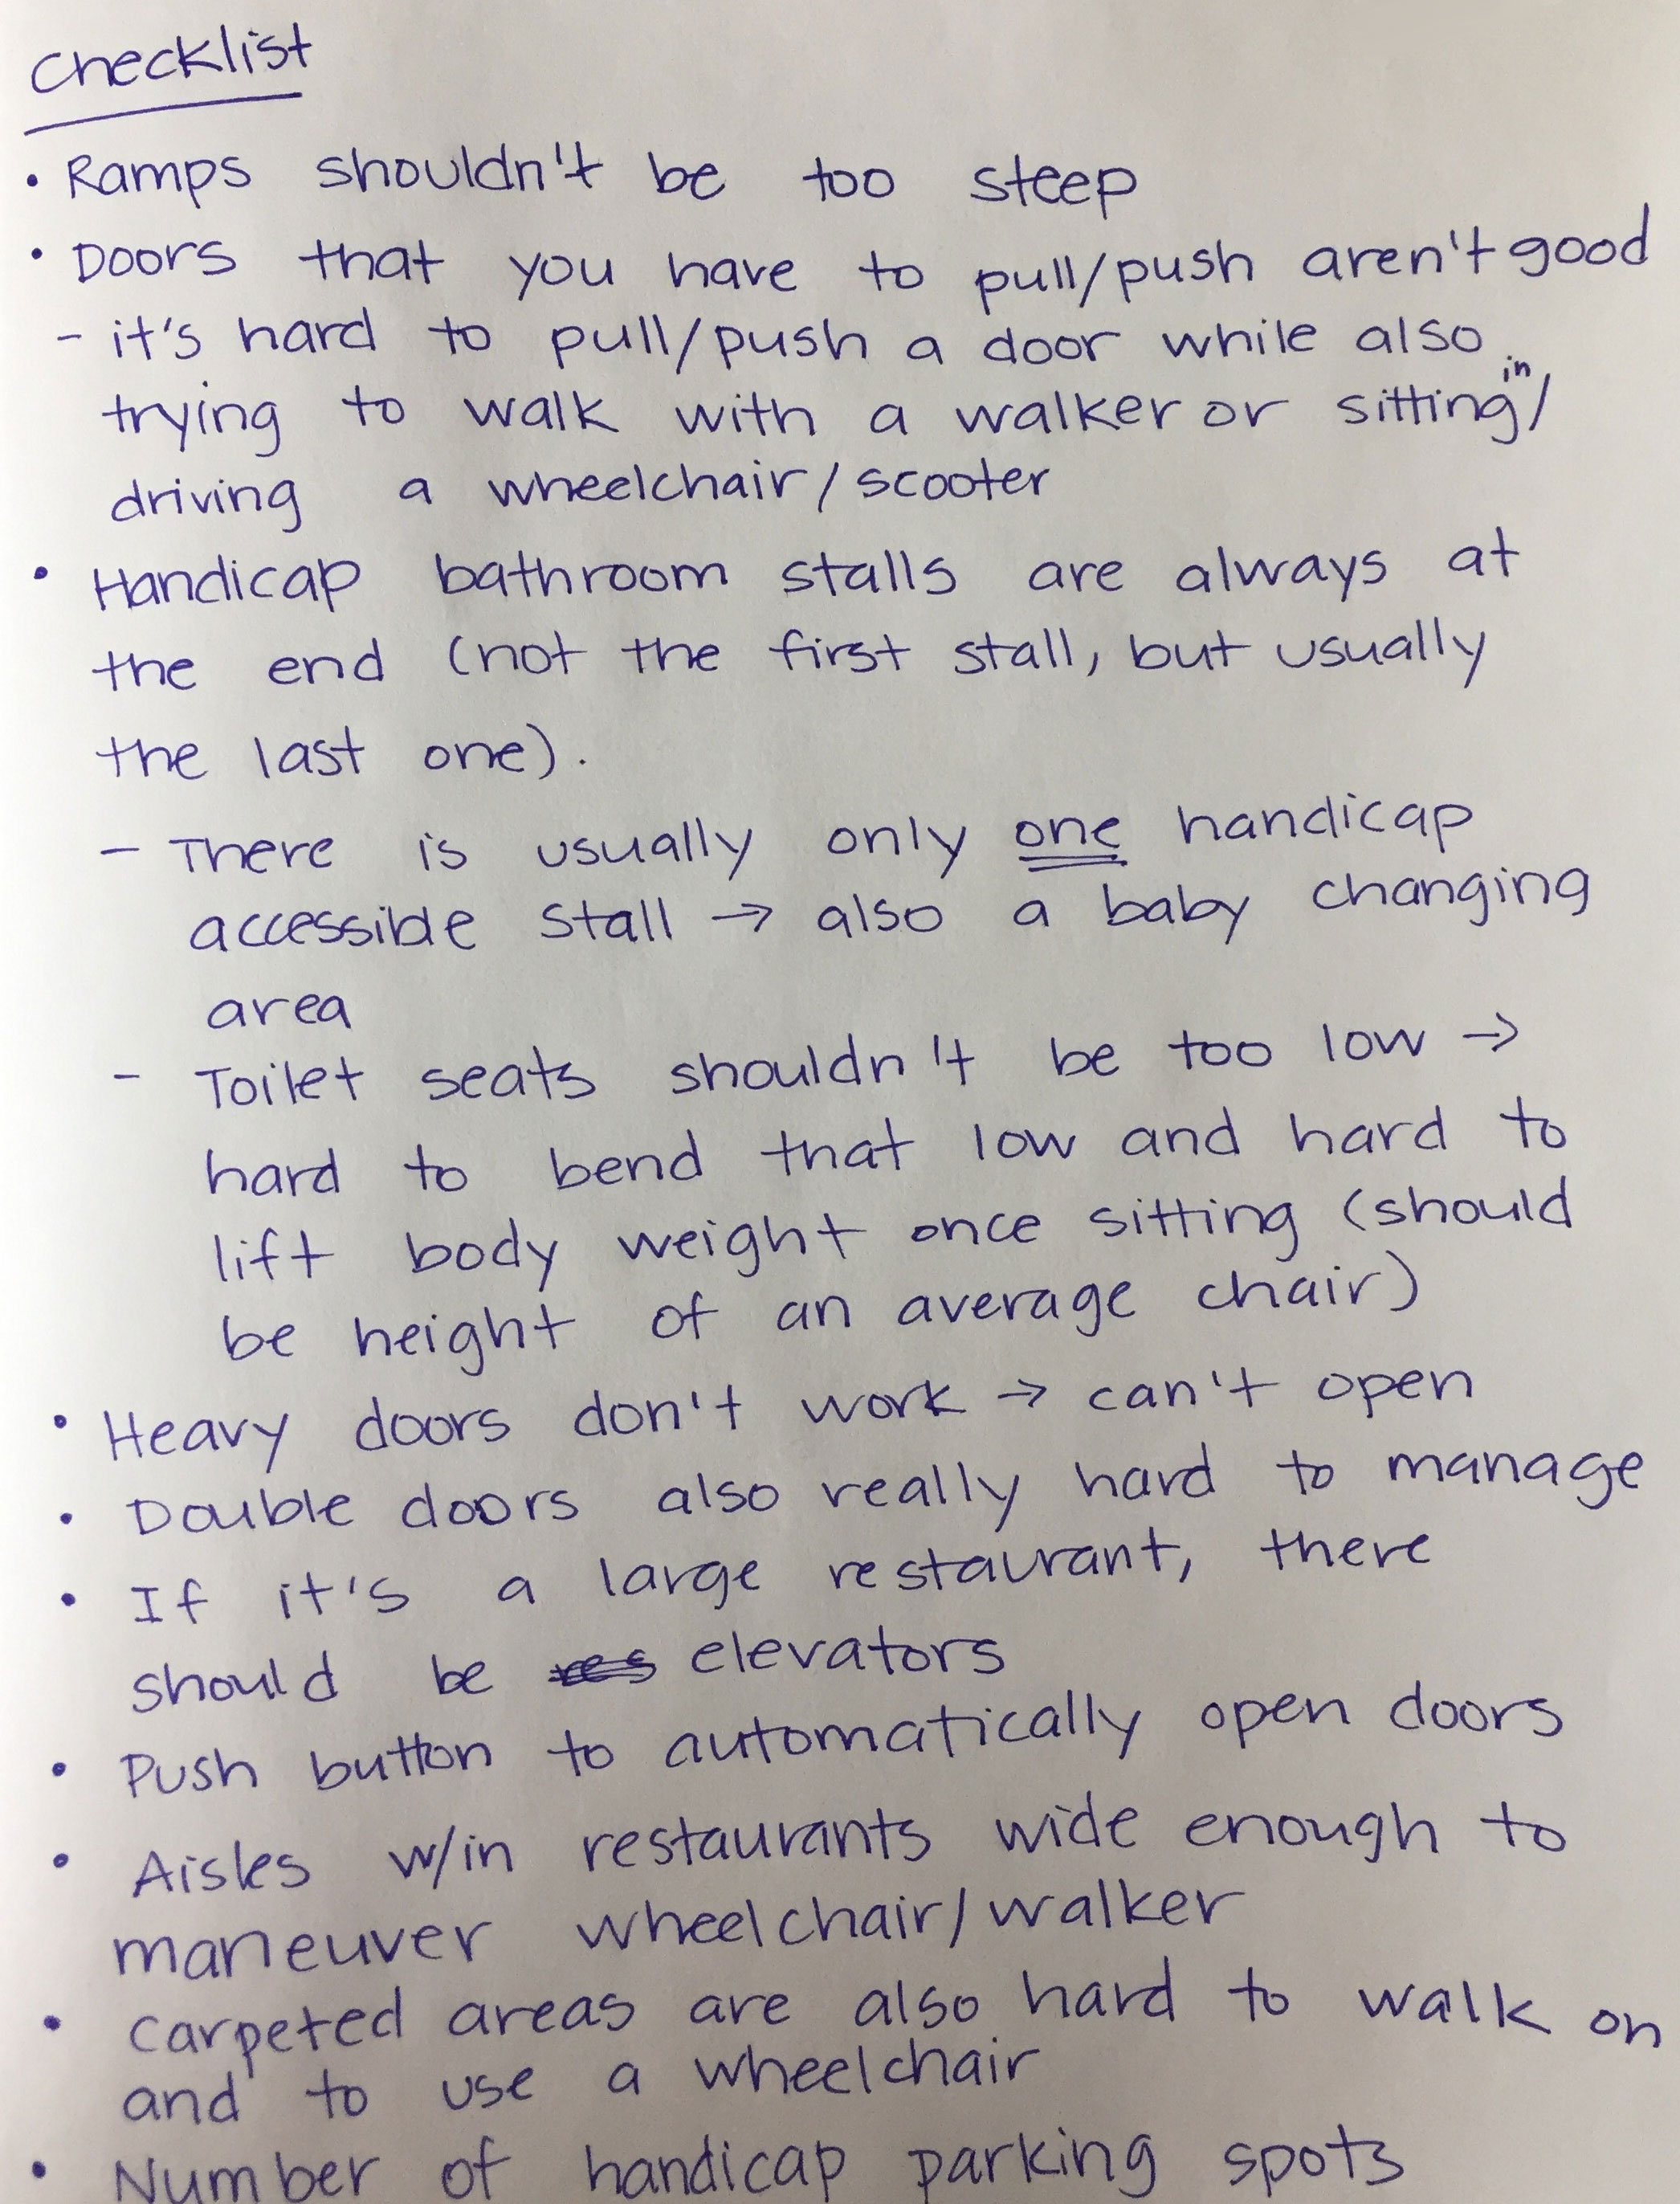 Checklist
• Ramps shouldn't be too steep
• Doors that you have to pull/push aren't good
- it's hard to pull/push a door while also
trying to walk with a walker or sitting in/
driving a wheelchair/scooter
• Handicap bathroom stalls are always at
the end (not the first stall, but usually
the last one).
- There is usually only one handicap
accessible stall → also a baby changing
area
- Toilet seats shouldn't be too low →
hard to bend that low and hard to
lift body weight once sitting (should
be height of an average chair)
• Heavy doors don't work → can't open
• Double doors also really hard to manage
• If it's a large restaurant, there
should be elevators
• Push button to automatically open doors
• Aisles w/in restaurants wide enough to
maneuver wheelchair/walker
• Carpeted areas are also hard to walk on
and to use a wheelchair
• Number of handicap parking spots